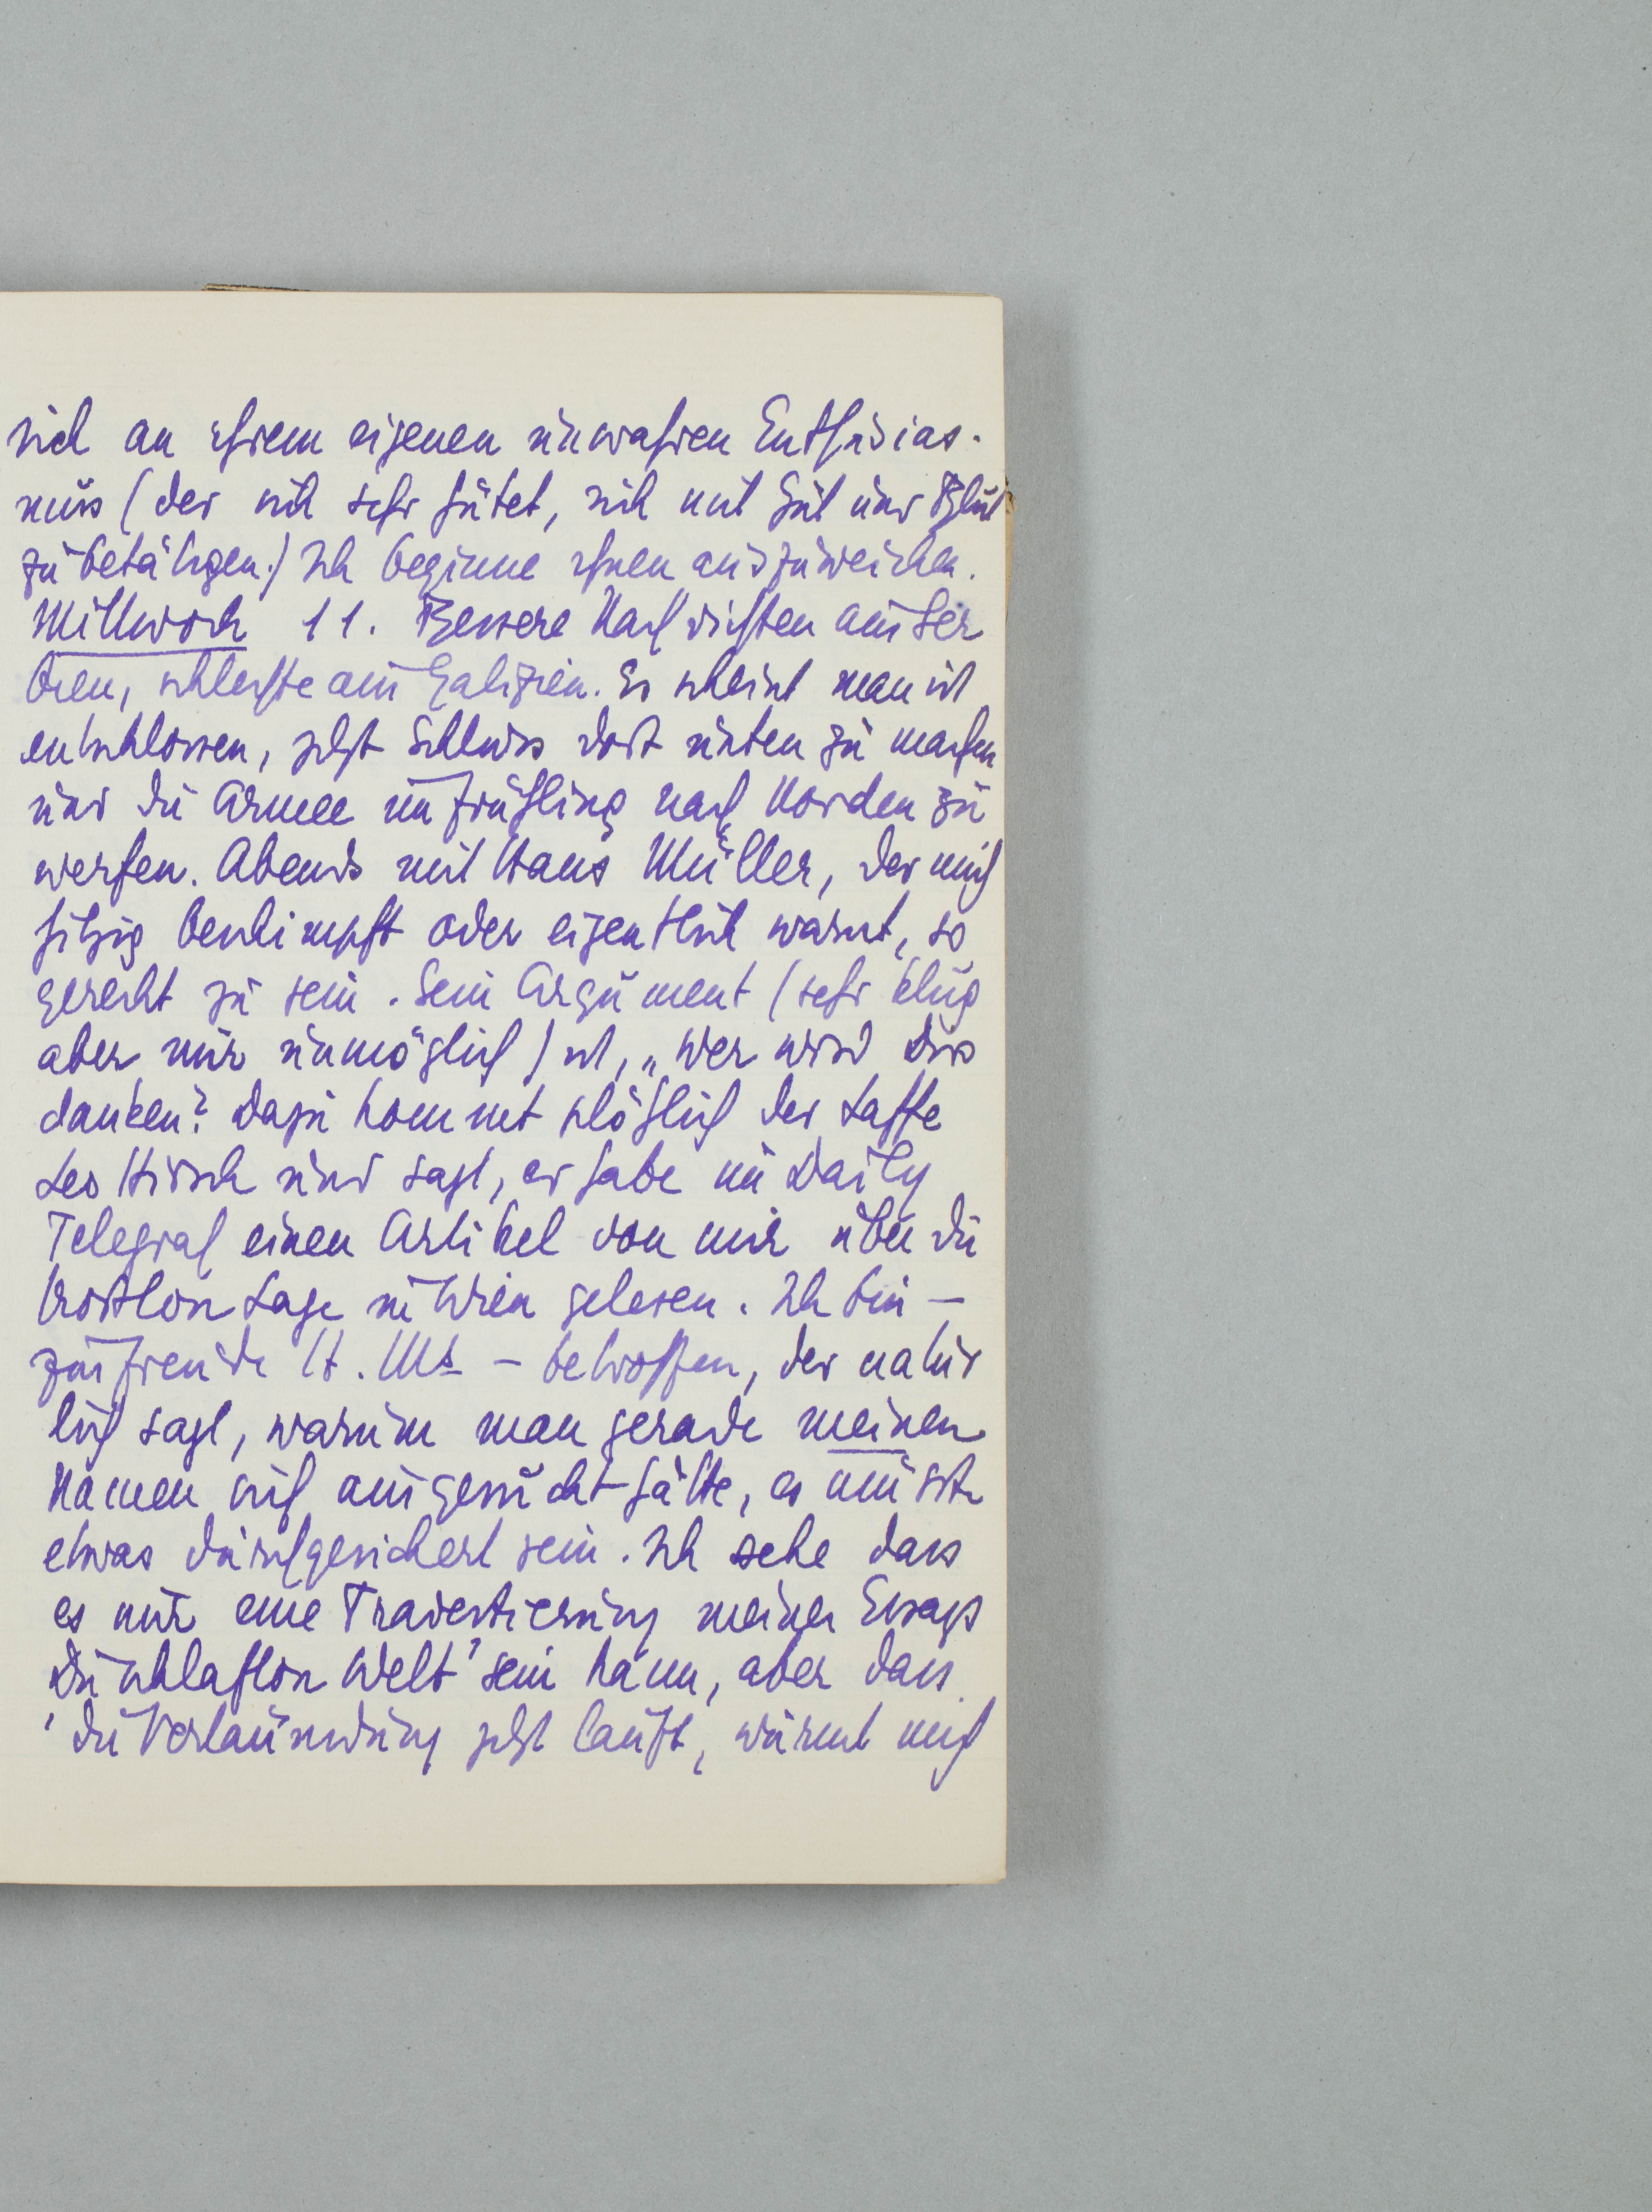 sich an ihrem eigenen unwahren Enthusias-
mus (der sich sehr hütet, sich mit Gut und Blut
zu betätigen.) Ich beginne ihnen auszuweichen.
Mittwoch 11. Bessere Nachrichten aus Ser
bien, schlechte aus Galizien. Es scheint man ist
entschlossen, jetzt Schluss dort unten zu machen
und die Armee im Frühling nach Norden zu
werfen. Abends mit Hans Müller, der mich
hitzig beschimpft oder eigentlich warnt, so
gerecht zu sein. Sein Argument (sehr klug
aber mir unmöglich) ist, „Wer wird Dirs
danken? Dazu kommt plötzlich der Laffe
Leo Hirsch und sagt, er habe im Daily
Telegraf einen Artikel von mir über die
trostlose Lage in Wien gelesen. Ich bin –
zur Freude H. Ms – betroffen, der natür
lich sagt, warum man gerade meinen
Namen sich ausgesucht hätte, es müsste
etwas durchgesickert sein. Ich sehe dass
es nur eine Travestierung meines Essays
Die schlaflose Welt' sein kann, aber dass
' die Verläumdung jetzt läuft, wurmt mich